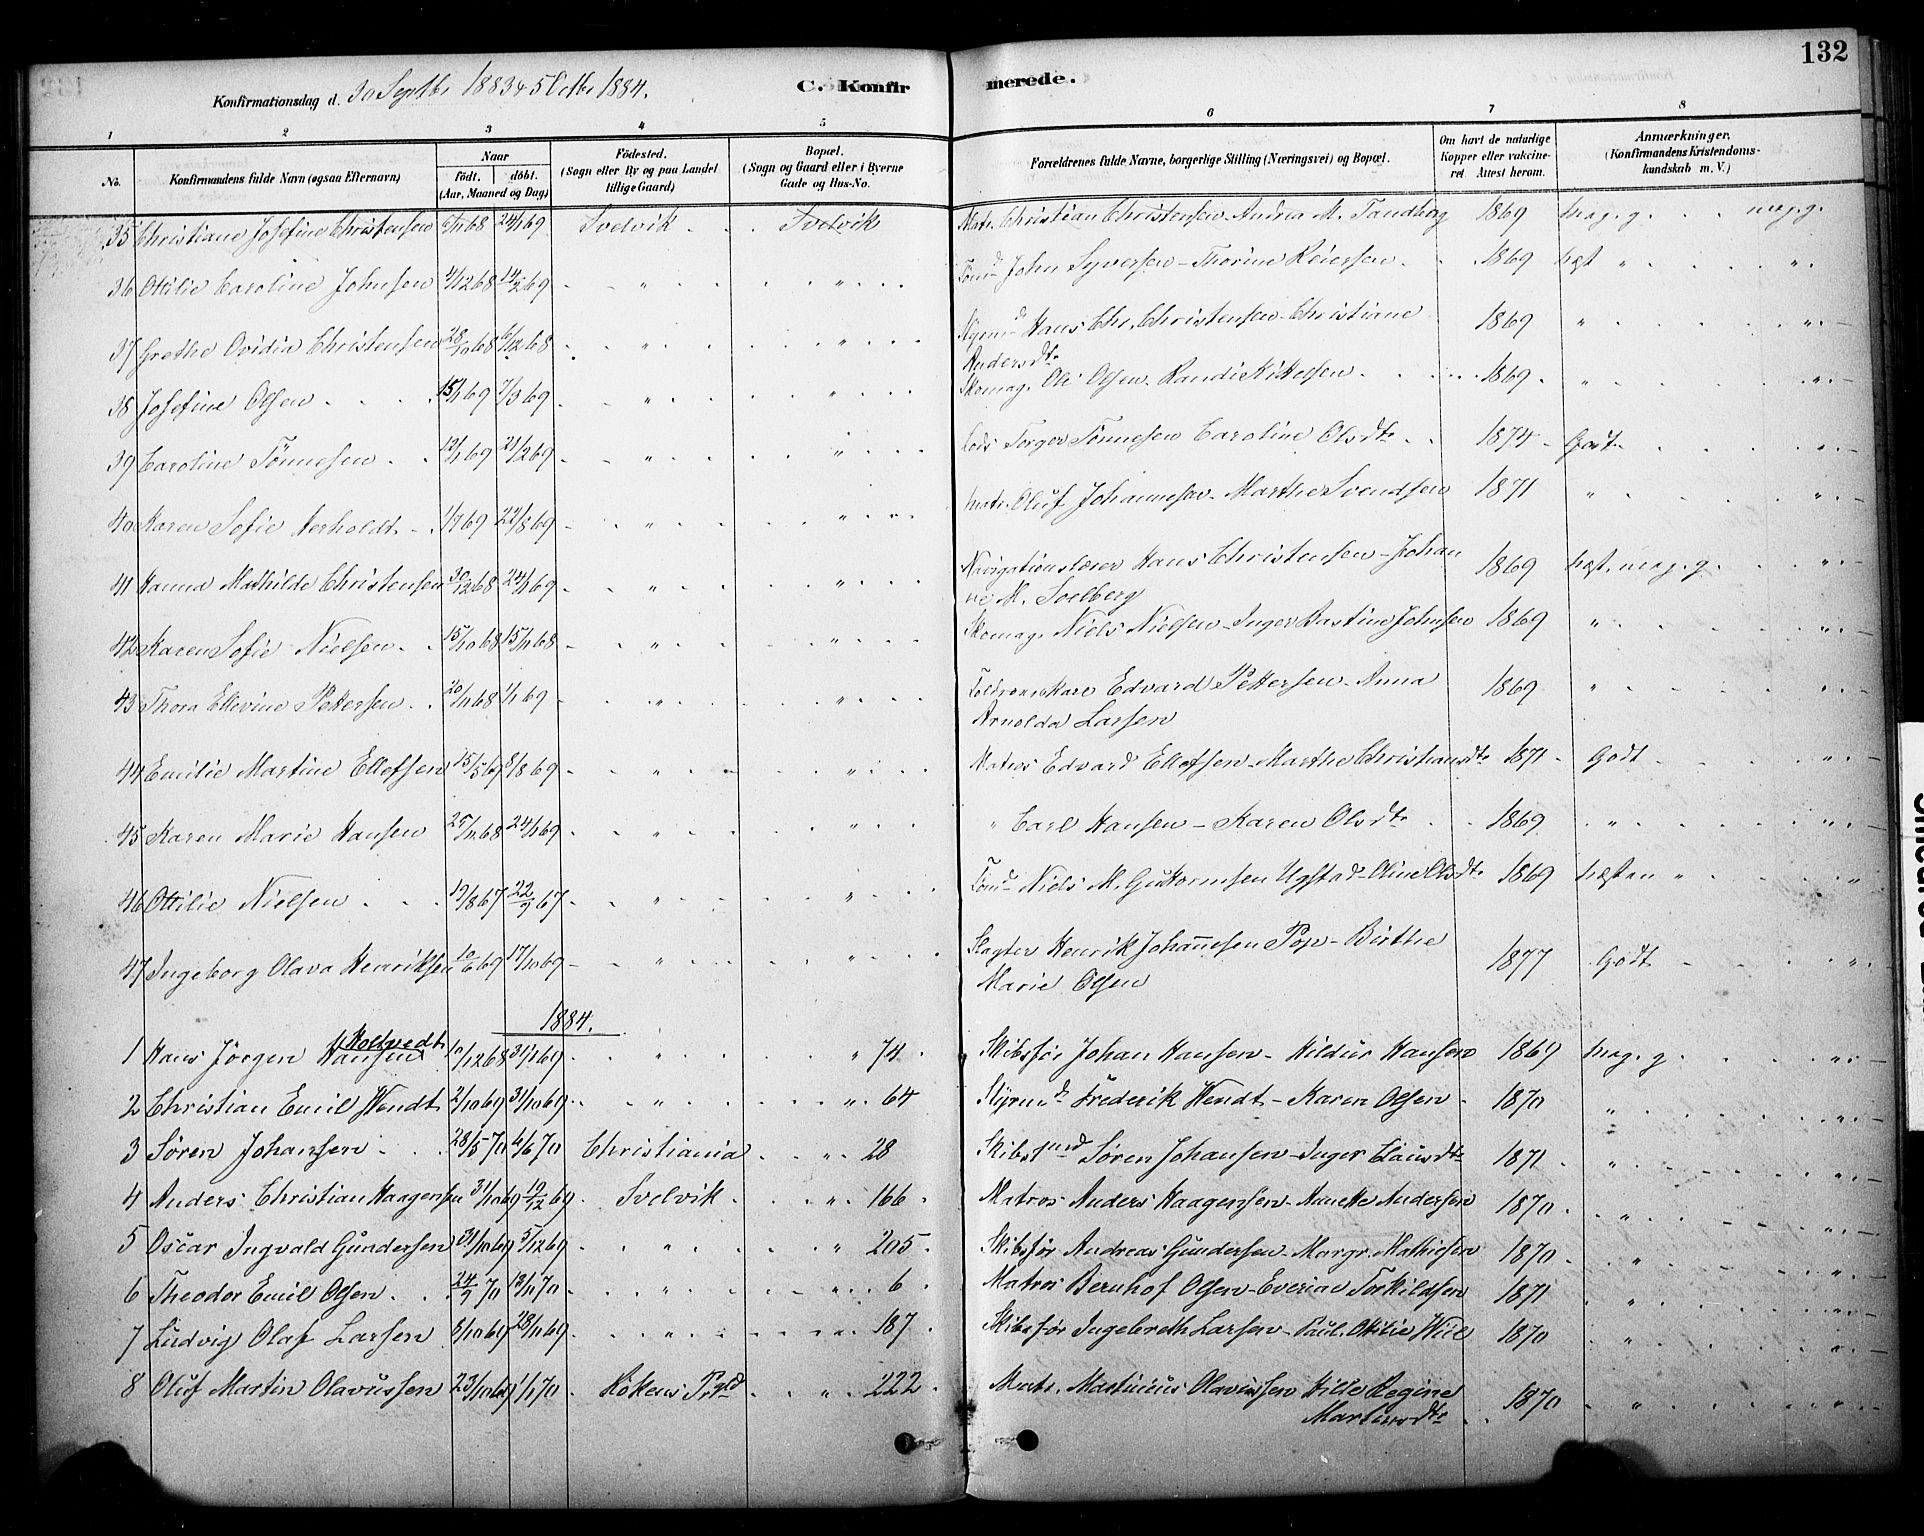 132
Konfirmationsdag d. 30 Septbr 1883 & 5 Octbr 1884.
C. Konfirmerede.
1 2 3 4 5 6 7 8
No. Konfirmandens fulde Navn (ogsaa Efternavn) Naar født. døbt. (Aar, Maaned og Dag) Fødested. (Sogn eller By og paa Landet tillige Gaard) Bopæl. (Sogn og Gaard eller i Byerne Gade og Hus-No. Forældrenes fulde Navne, borgerlige Stilling (Næringsvei) og Bopæl. Om havt de naturlige Kopper eller vaccineret. Attest herom. Anmærkninger. (Konfirmandens Kristendomskundskab m. V.)
35 Christiane Josefine Christensen 6/11 68 24/1 69 Svelvik Svelvik Matr. Christian Christensen Andrea M. Tandberg 1869 meg. g. meg. g.
36 Ottilie Caroline Johnsen 4/12 68 14/2 69 " " Tømd John Syversen - Thorine Reiersen 1869 næst " "
37 Grethe Ovidia Christensen 28/10 68 6/12 68 " " Styrmd Hans Chr. Christensen - Christiane Andersdtr 1869 " "
38 Josefine Olsen 15/1 69 7/3 69 " " Skomag. Ole Olsen - Randi Kittelsen 1869 " "
39 Caroline Tönnesen 12/1 69 21/2 69 " " Lods Torger Tönnesen Caroline Olsdtr 1874 Godt "
40 Karen Sofie Nerholdt 1/7 69 22/8 69 " " Matr. Oluf Johannesen - Marthe Svendsen 1871 " "
41 Hanna Mathilde Christensen 30/12 68 24/1 69 " " Navigationslærer Hans Christensen - Johanne M. Solberg 1869 næst. meg. g. "
42 Karen Sofie Nielsen 15/10 68 15/11 68 " " Skomag. Niels Nielsen - Inger Bastine Johnsen 1869 " "
43 Thora Ellevine Pettersen 20/11 68 1/1 69 " " Edvard Pettersen - Anna Arnolda Larsen 1869 " "
44 Emilie Martine Ellefsen 15/5 69 8/8 69 " " Matros Edvard Ellefsen - Marthe Christiansdtr 1871 Godt "
45 Karen Marie Hansen 25/11 68 24/1 69 " " " Carl Hansen - Karen Olsdtr 1869 " "
46 Ottilie Nielsen 19/8 67 22/9 67 " " Tømd Niels M. Guttormsen Ugstad - Oline Olsdtr 1869 næsten " "
47 Ingeborg Olava Henriksen 10/6 69 17/10 69 " " Slagter Henrik Johannesen Pop - Birthe Marie Olsen 1877 Godt "
1884.
1 Hans Jörgen Hansen Holtvedt 10/12 68 31/1 69 " " 74 Skibsför Johan Hansen - Hildur Hansen 1869 meg. g. "
2 Christian Emil Wendt 2/10 69 31/10 69 " " 64 Styrmd Frederik Wendt - Karen Olsen 1870 " "
3 Sören Johansen 28/5 70 4/6 70 Christiania " 28 Skibstmd Sören Johansen - Inger Clausdtr 1871 " "
4 Anders Christian Haagensen 31/10 69 19/12 69 Svelvik " 166 Matros Anders Haagensen - Anette Andersen 1870 " "
5 Oscar Ingvald Gundersen 31/10 69 5/12 69 " " 205 Skibsför Andreas Gundersen - Margr. Mathiesen 1870 " "
6 Theodor Emil Olsen 24/9 70 13/11 70 " " 6 Matros Bernhof Olsen - Everine Torkildsen 1871 " "
7 Ludvig Olaf Larsen 8/10 69 28/11 69 " " 187 Skibsför Ingebreth Larsen - Paul. Ottilie Wiil 1870 " "
8 Oluf Martin Olavussen 23/10 69 1/1 70 Rökens Prgld " 222 Matr. Martinius Olavussen Hille Regine Martinsdtr 1870 " "